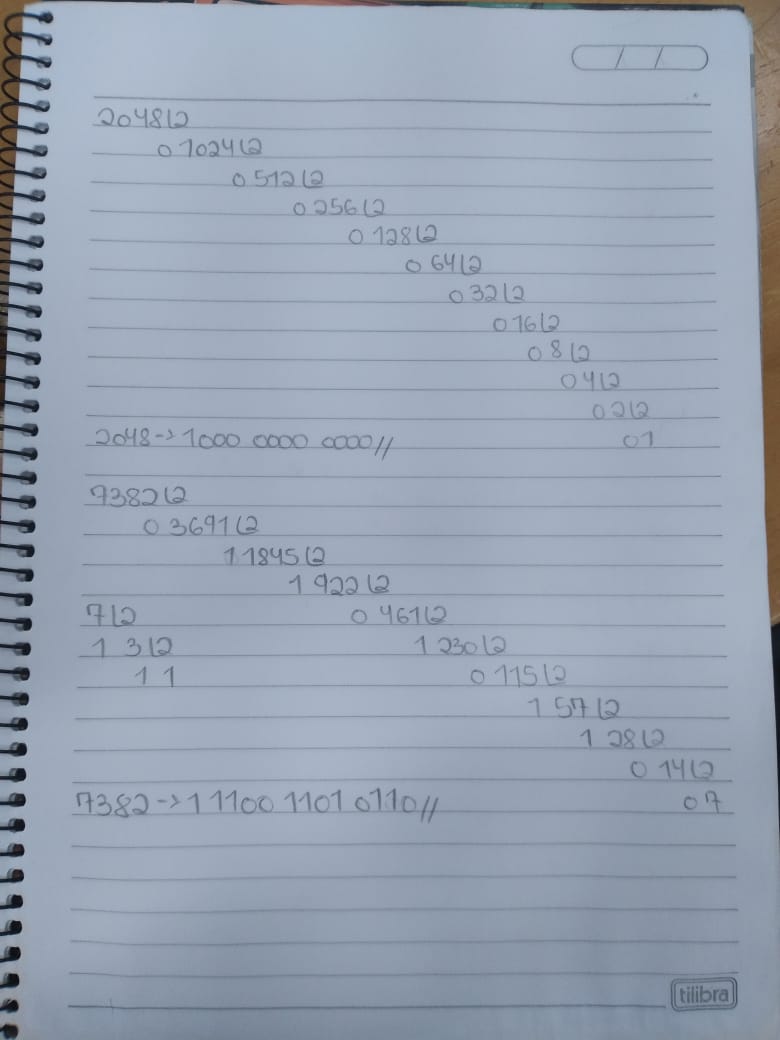 / /
2048 L2
0 1024 L2
0 512 L2
0 256 L2
0 128 L2
0 64 L2
0 32 L2
0 16 L2
0 8 L2
0 4 L2
0 2 L2
2048 -> 1000 0000 0000 // 0 1
7382 L2
0 3691 L2
1 1845 L2
1 922 L2
7 L2 0 461 L2
1 3 L2 1 230 L2
1 1 0 115 L2
1 57 L2
1 28 L2
0 14 L2
7382 -> 1 1100 1101 0110 // 0 7
tilibra